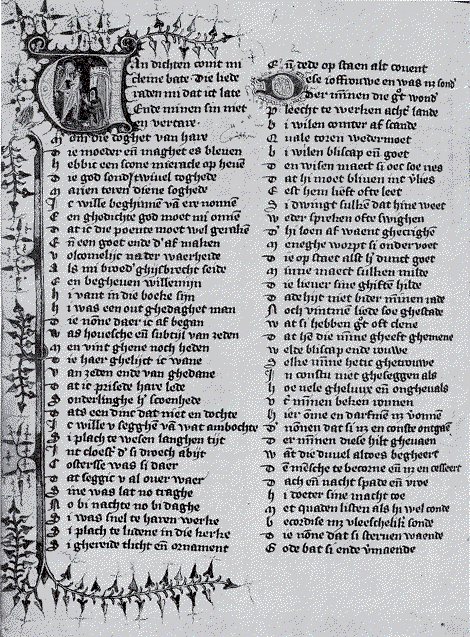 Van dichten comt mi
cleine bate Die liede
raden mi dat ict late
Ende minen sin niet
en vertare
M om die doghet van hare
D ie moeder en̄ maghet es bleuen
h ebbic een scone mieracle op heuen
D ie god sonder twiuel toghede
M arien teren diene soghede
I c wille beghinnen van ere nonnen
E en ghedichte god moet mi onnen
D at ic die poente moet wel geraken
E n̄ een goet ende der af maken
V olcomelijc na der waerheide
A ls mi broeder ghijsbrecht seide
E en begheuen willemijn
h i vant in die boeke sijn
h i was een out ghedaghet man
D ie nonne daer ic af began
W as houesche en̄ subtijl van zeden
M en vint ghene noch heden
D ie haer ghelijct ic wane
V an zeden ende van ghedane
D at ic prisede hare lede
S onderlinghe haer scoenhede
D ats een dinc dat niet en dochte
I c wille v segghen van wat ambochte
S i plach te wesen langhen tijt
I nt cloester daer si droech abijt
C ostersse was si daer
D at seggic v al ouer waer
S ine was lat no traghe
N o bi nachte no bi daghe
S i was snel te haren werke
S i plach te ludene in die kerke
S i ghereide tlicht en̄ ornament
E n̄ dede op staen alt couent
Dese ioffrouwe en was niet sonder
Der minnen die groet wonder
P leecht te werken achter lande
B i wilen comter af scande
Q uale toren wedermoet
B i wilen bliscap en̄ goet
D en wisen maect si oec soe ries
D at hi moet bliuen int verlies
E st hem lieft ofte leet
S i dwingt sulken dat hine weet
W eder spreken ofte swighen
D aer hi loen af waent gecrighen
M eneghe worpt si onder voet
D ie op staet alst haer dunct goet
M inne maect sulken milde
D ie lieuer sine ghiften hilde
D ade hijt niet bider minnen rade
N och vintmen liede soe ghestade
W at si hebben groet oft clene
D at hen die minne gheeft ghemene
W elde bliscap ende rouwe
S elke minne hetic ghetrouwe
I n constu niet gheseggen als
h oe vele gheluux en̄ ongheuals
V ter minnen beken ronnen
h ier omme en darfmen niet veronnen
D er nonnen dat si niet en conste ontgaen
D er minnen diese hilt gheuaen
W ant die duuel altoes begheert
D en mensche te becorne en̄ niet en cesseert
D ach en̄ nacht spade en̄ vroe
h i doeter sine macht toe
M et quaden listen als hi wel conde
B ecordise met vleescheliker sonde
D ie nonne dat si steruen waende
G ode bat si ende vermaende